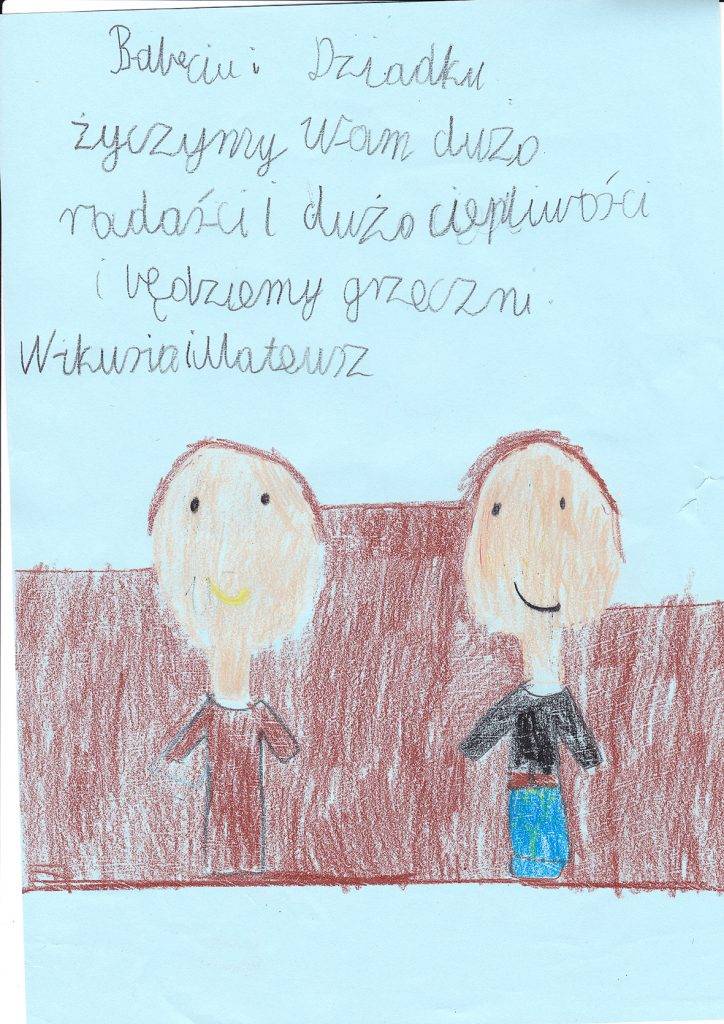 Babciu i Dziadku
życzymy Wam dużo
radaści i dużo cierpliwości
i będziemy grzeczni.
Wikusia i Mateusz